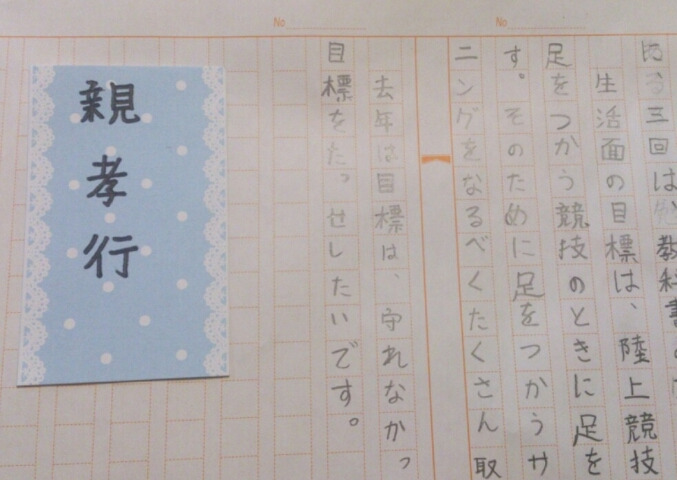 No
No
る三回は、教科書の
生活面の目標は、陸上競技
足をつかう競技のときに足を
す。そのために足をつかうサ
ニングをなるべくたくさん取
去年は目標は、守れなかっ
目標をたっせしたいです。
親孝行